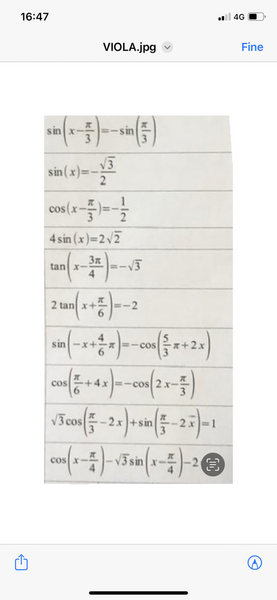 16:47
4G
VIOLA.jpg
Fine
sin(x-π/3)=-sin(π/3)
sin(x)=-√3/2
cos(x-π/3)=-1/2
4sin(x)=2√2
tan(x-3π/4)=-√3
2 tan(x+π/6)=-2
sin(-x+4/6π)=-cos(5/3π+2x)
cos(π/6+4x)=-cos(2x-π/3)
√3cos(π/3-2x)+sin(π/3-2x)=1
cos(x-π/4)-√3sin(x-π/4)-2